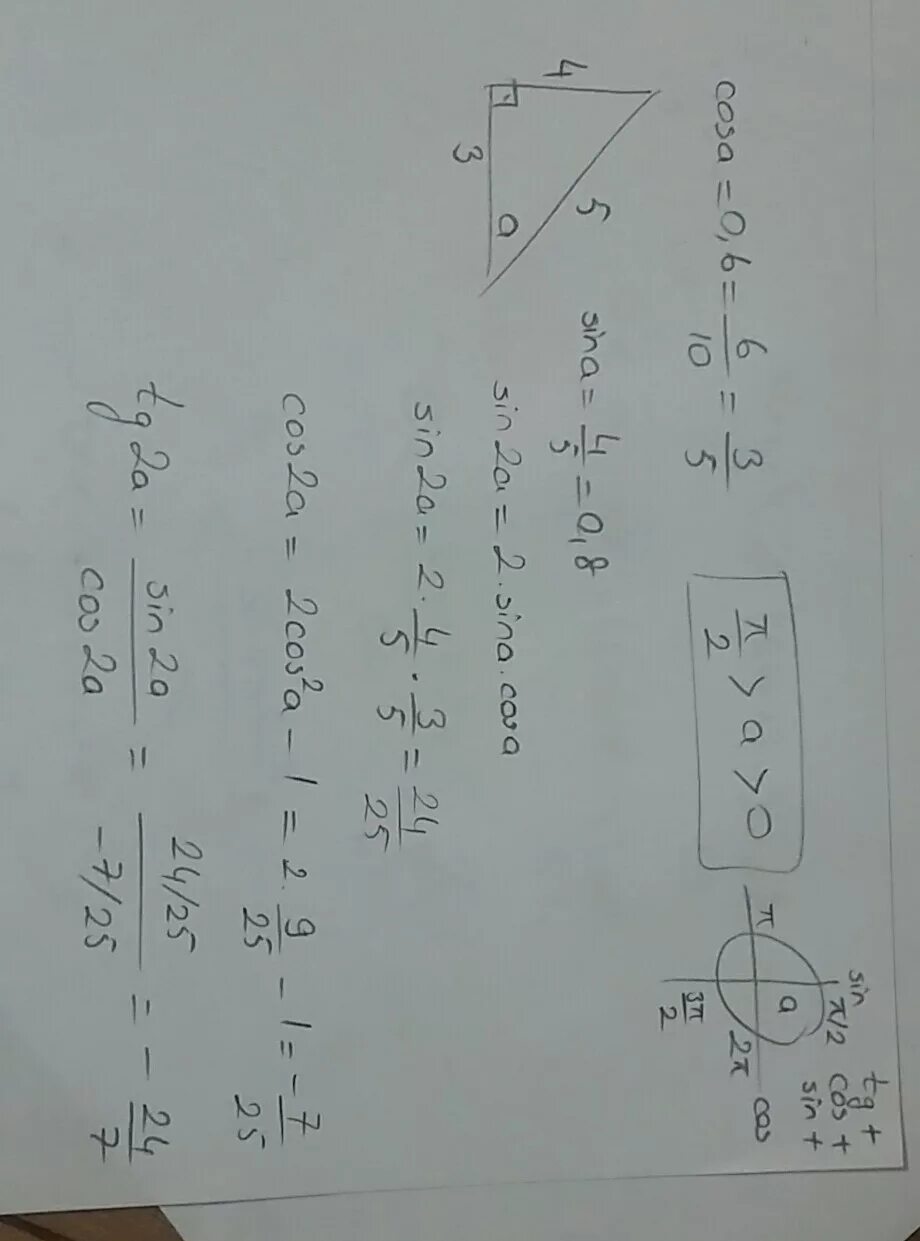 cosa = 0,6 = 6/10 = 3/5
π/2 > a > 0
sin
π/2
π
a
2π
cos
3π/2
tg +
cos +
sin +
4
5
3
a
sina = 4/5 = 0,8
sin2a = 2 . sina . cosa
sin2a = 2 . 4/5 . 3/5 = 24/25
cos2a = 2cos²a - 1 = 2 . 9/25 - 1 = - 7/25
tg2a = sin2a / cos2a = 24/25 / -7/25 = - 24/7